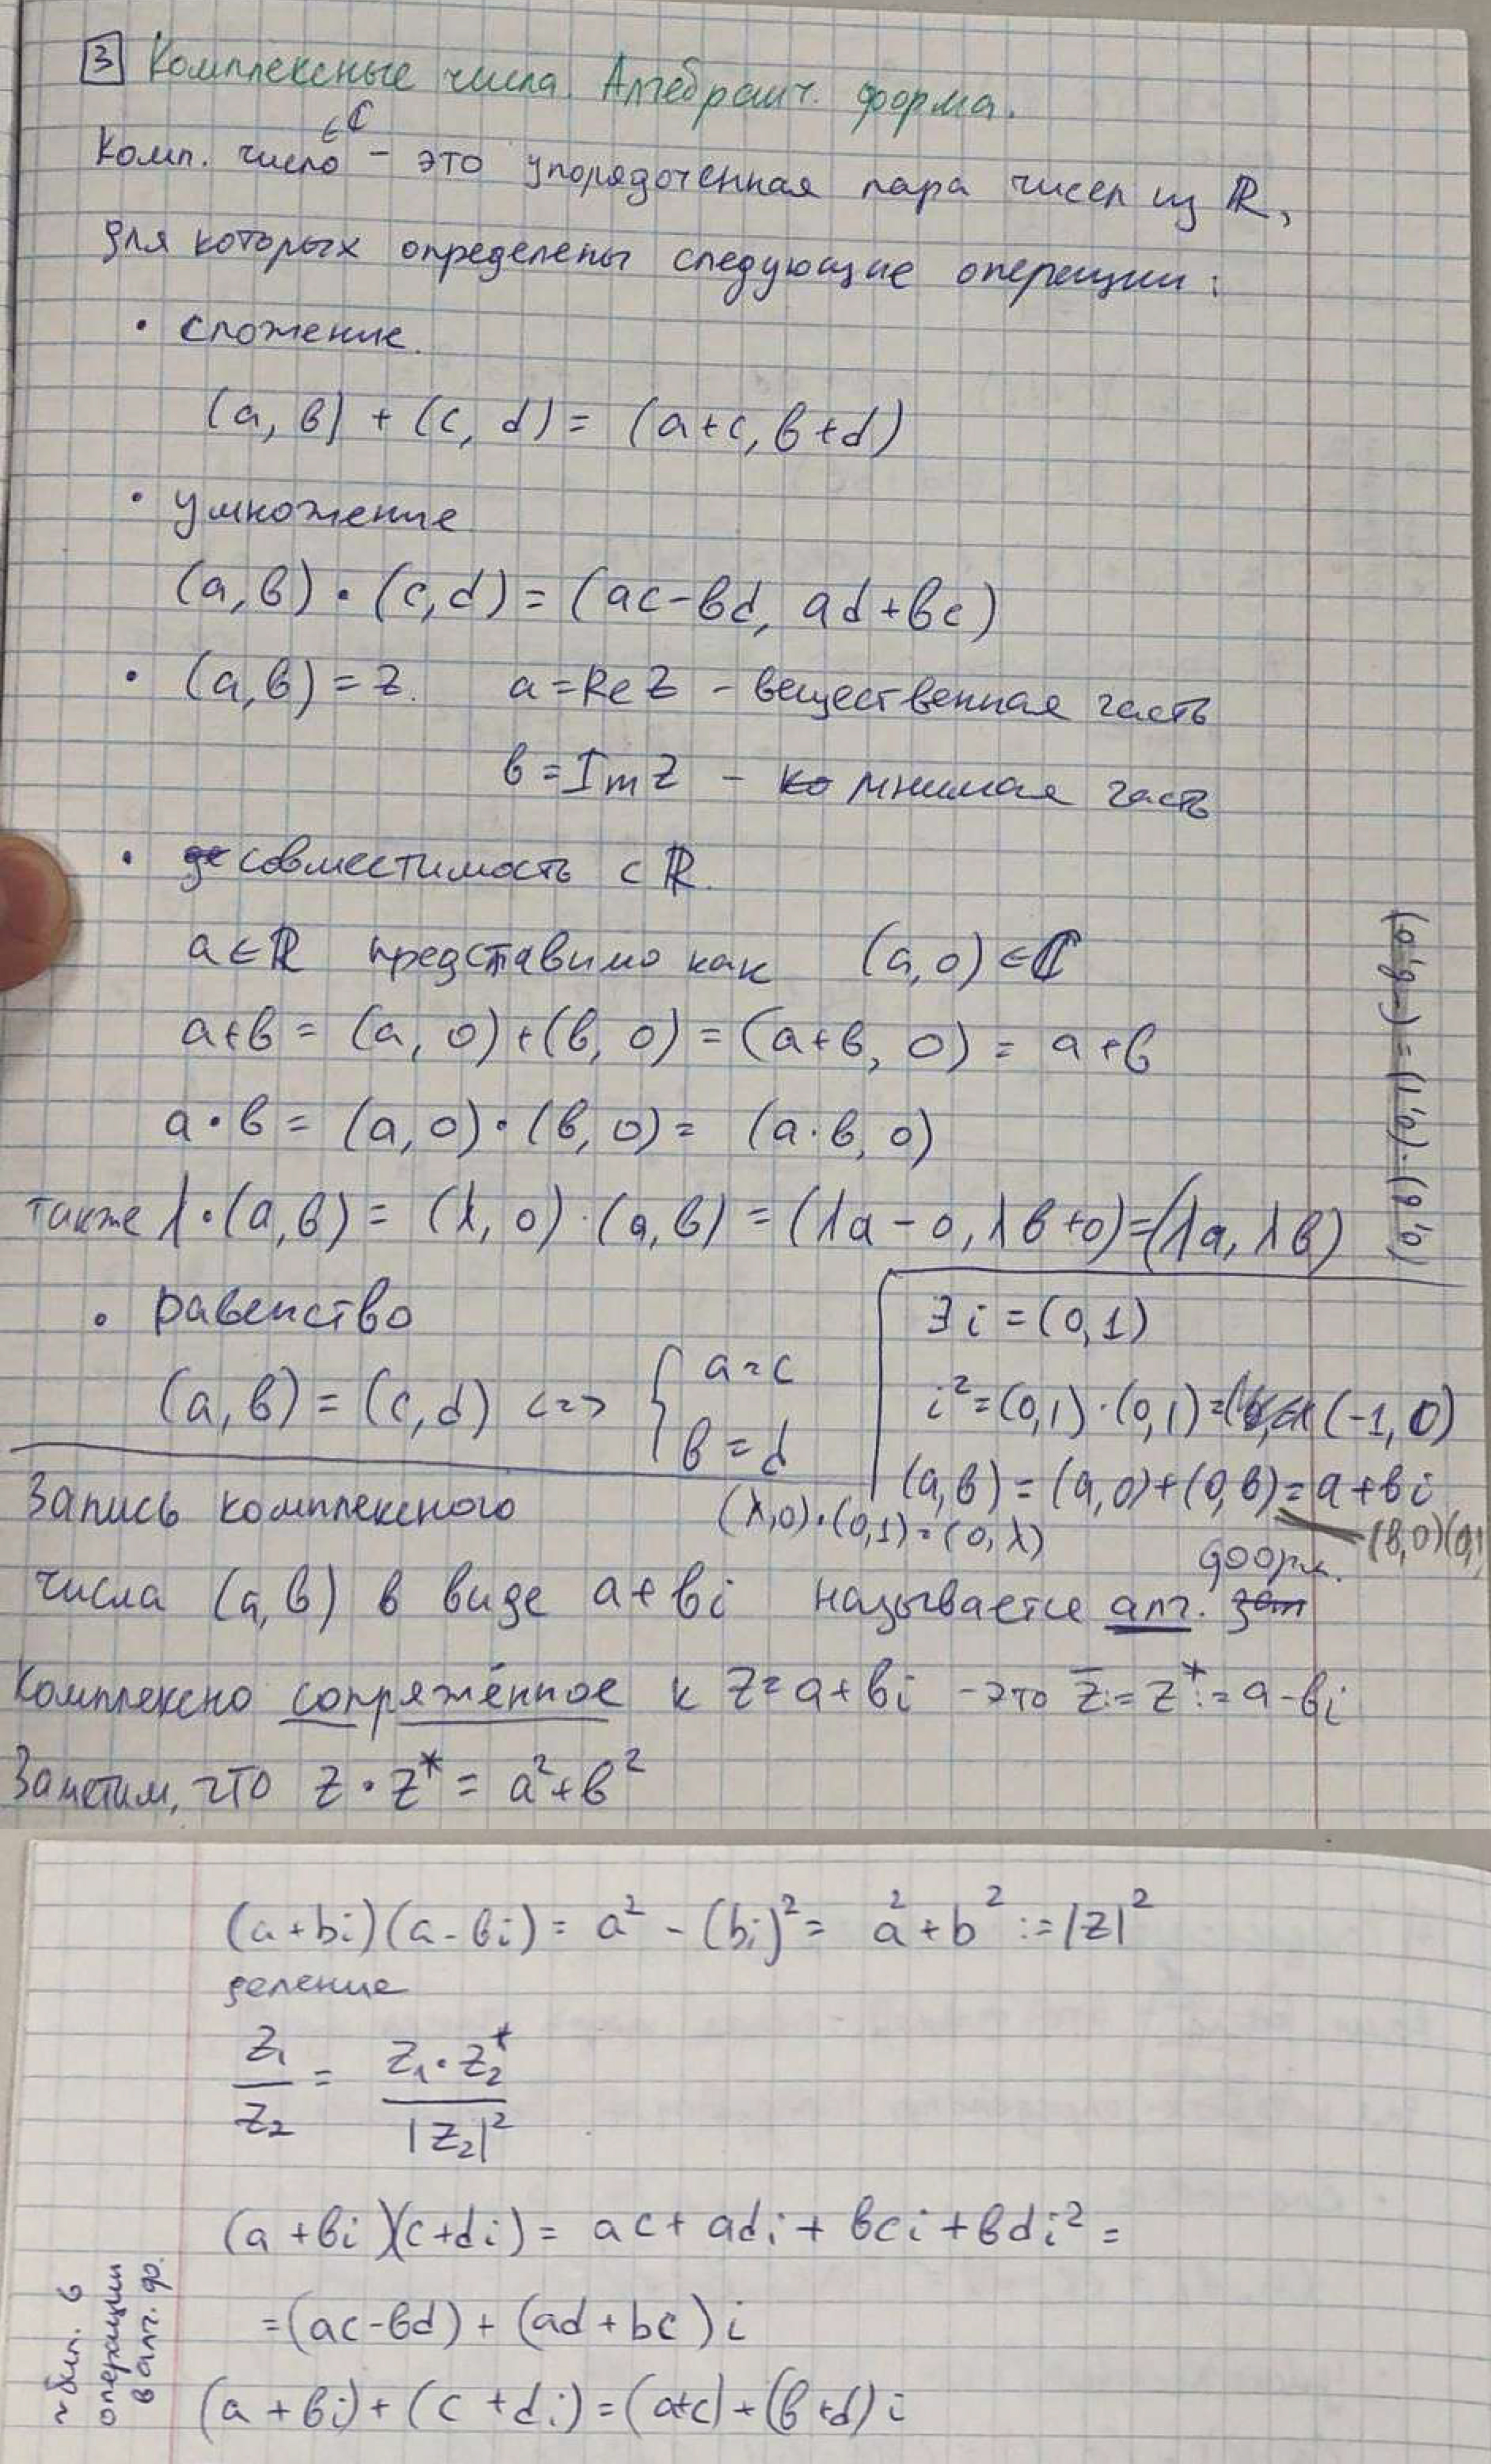 3 Комплексные числа. Алгебраич. форма.
Комп. число ∈ℂ - это упорядоченная пара чисел из ℝ,
для которых определены следующие операции:
• сложение.
(a, b) + (c, d) = (a+c, b+d)
• умножение
(a,b) • (c,d) = (ac-bd, ad+bc)
• (a,b) = z. a = Re z - вещественная часть
b = Im z - ко мнимая часть
• де совместимость с ℝ.
a∈ℝ представимо как (a,0) ∈ℂ
a+b = (a, 0)+(b, 0) = (a+b, 0) = a+b
a•b = (a,0)•(b,0) = (a·b, 0)
также λ•(a,b) = (λ,0)·(a,b) = (λa-0, λb+0) = (λa, λb)
(a,b)·(0,1) = (-b,a)
• равенство
(a,b) = (c,d) <=> { a=c
b=d
∃ i = (0,1)
i² = (0,1)·(0,1) = (-1, 0)
(a,b) = (a,0)+(0,b) = a+bi
(b,0)(0,1
(λ,0)•(0,1) = (0,λ)
Запись комплексного
числа (a,b) в виде a+bi называется алг. форм.
Комплексно сопряжённое к z=a+bi - это z̄ := z* := a-bi
Заметим, что z•z* = a²+b²
(a+bi)(a-bi) = a² - (bi)² = a²+b² := |z|²
деление
z₁/z₂ = z₁•z₂*/|z₂|²
(a+bi)(c+di) = ac+adi+bci+bdi² =
= (ac-bd) + (ad+bc)i
(a+bi)+(c+di) = (a+c)+(b+d)i
операции
в алг. ф.